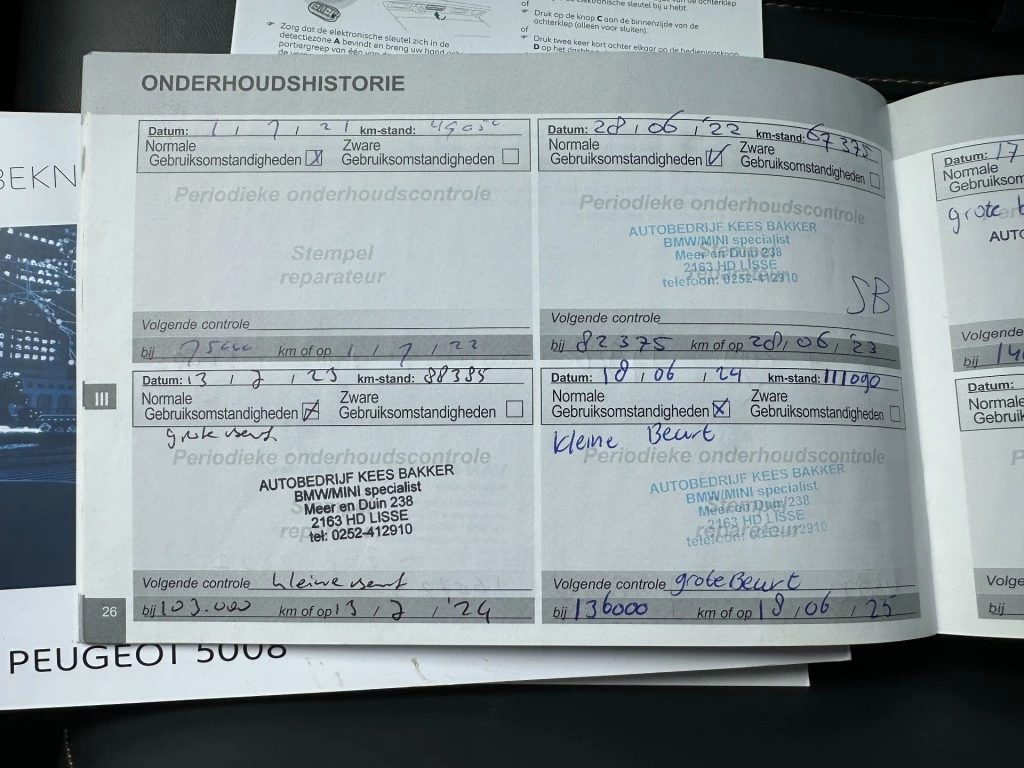 achterklep
elektronische sleutel bij u hebt.
of
Druk op de knop C aan de binnenzijde van de
achterklep (alleen voor sluiten).
of
Druk twee keer kort achter elkaar op de bedieningsknop
D op het dashboard
Zorg dat de elektronische sleutel zich in de
detectiezone A bevindt en breng uw hand
portiergreep van één van
BEKN
ONDERHOUDSHISTORIE
Datum: 1 / 7 / 21 km-stand:
Normale
Gebruiksomstandigheden X
Zware
Gebruiksomstandigheden
Periodieke onderhoudscontrole
Stempel
reparateur
Volgende controle
bij 75000 km of op 1 / 7 / 22
Datum: 28 / 06 / '22 km-stand: 67375
Normale
Gebruiksomstandigheden
Zware
Gebruiksomstandigheden
Periodieke onderhoudscontrole
AUTOBEDRIJF KEES BAKKER
BMW/MINI specialist
Meer en Duin 238
2163 HD LISSE
telefoon: 0252-412910
Stempel
reparateur
SB
Volgende controle
bij 82375 km of op 28 / 06 / '23
III
Datum: 13 / 7 / 23 km-stand: 88385
Normale
Gebruiksomstandigheden
Zware
Gebruiksomstandigheden
grote beurt
Periodieke onderhoudscontrole
AUTOBEDRIJF KEES BAKKER
BMW/MINI specialist
Meer en Duin 238
2163 HD LISSE
tel: 0252-412910
Volgende controle kleine beurt
bij 103.000 km of op 13 / 7 / '24
Datum: 18 / 06 / 24 km-stand: 111090
Normale
Gebruiksomstandigheden X
Zware
Gebruiksomstandigheden
kleine Beurt
Periodieke onderhoudscontrole
AUTOBEDRIJF KEES BAKKER
BMW/MINI specialist
Meer en Duin 238
2163 HD LISSE
telefoon: 0252-412910
Stempel
reparateur
Volgende controle grote Beurt
bij 136000 km of op 18 / 06 / 25
26
Datum: 17
Normale
Gebruiksom
grote b
AUTO
Volgende
bij 140
Datum:
Normale
Gebruik
Volge
bij
PEUGEOT 5008